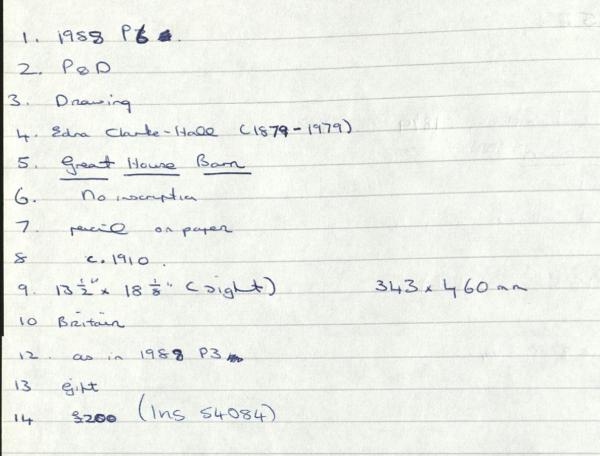 1. 1988 P6
2. P&D
3. Drawing
4. Edna Clarke-Hall (1879-1979)
5. Great House Barn
6. No inscription
7. pencil on paper
8 c.1910.
9. 13 ½" x 18 ⅛" (sight) 343 x 460 mm
10 Britain
12. as in 1988 P3
13 gift
14 £200 (Ins 54084)